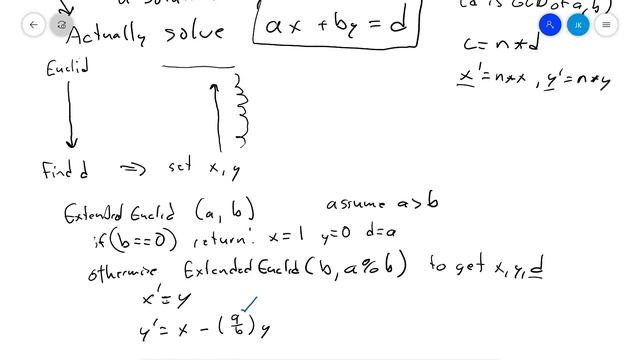 a solut
(d is GCD of a, b)
Actually solve
ax + by = d
c = n * d
x' = n * x , y' = n * y
Euclid
Find d => set x, y
Extended Euclid (a, b) assume a > b
if (b == 0) return: x = 1 y = 0 d = a
otherwise Extended Euclid (b, a % b) to get x, y, d
x' = y
y' = x - (a/b) y
JK